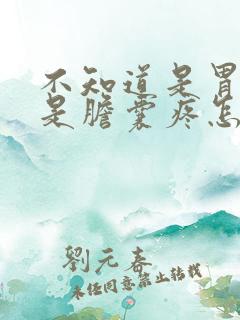 不知道是胃
是膽囊疼怎
劉元春
未经同意禁止转载